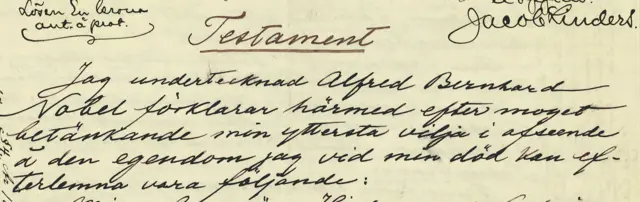 ant. å prot.
Testament
Jag undertecknad Alfred Bernhard
Nobel förklarar härmed efter moget
betänkande min yttersta vilja i afseende
å den egendom jag vid min död kan ef-
terlemna vara följande: